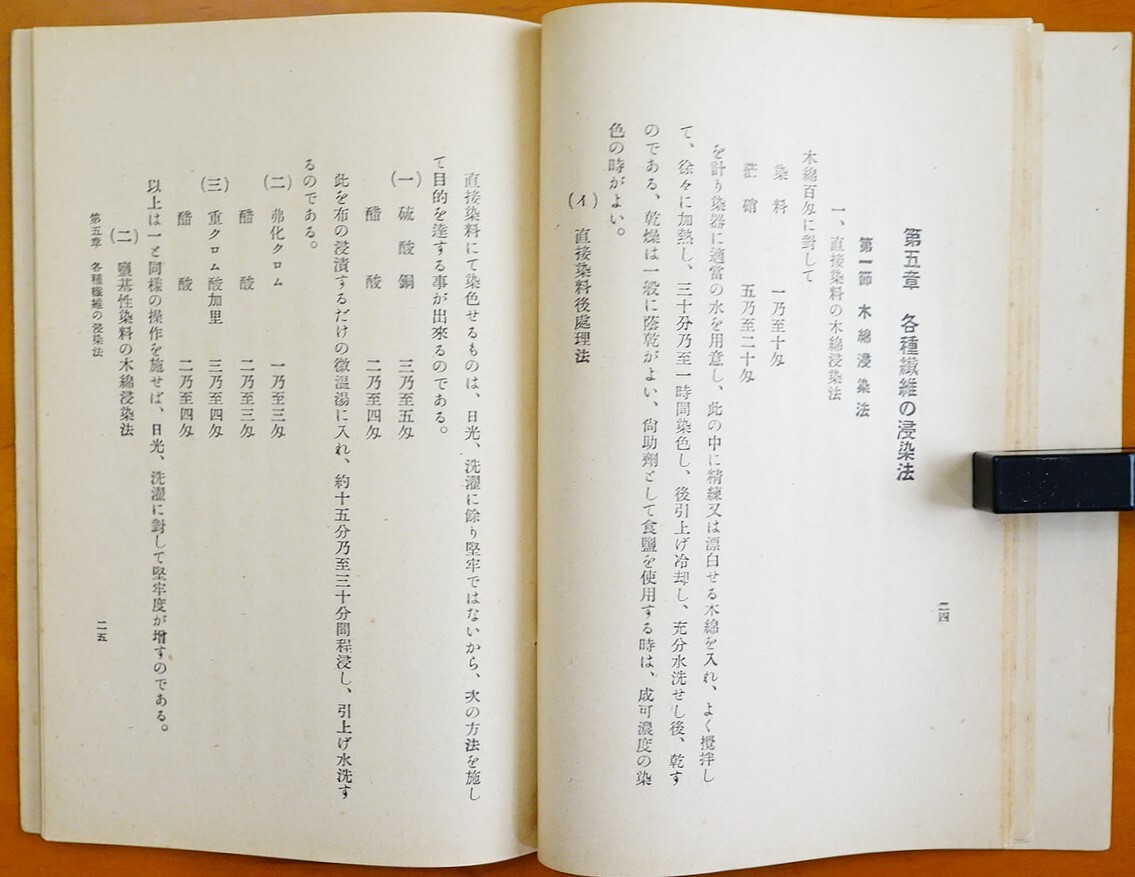 二四
第五章　各種纖維の浸染法
第一節　木綿浸染法
一、直接染料の木綿浸染法
木綿百匁に對して
染料　一乃至十匁
芒硝　五乃至二十匁
を計り染器に適當の水を用意し、此の中に精練又は漂白せる木綿を入れ、よく攪拌し
て、徐々に加熱し、三十分乃至一時間染色し、後引上げ冷却し、充分水洗せし後、乾す
のである、乾燥は一般に蔭乾がよい、尙助劑として食鹽を使用する時は、成可濃度の染
色の時がよい。
(イ)　直接染料後處理法
直接染料にて染色せるものは、日光、洗濯に餘り堅牢ではないから、次の方法を施し
て目的を達する事が出來るのである。
(一)　硫酸銅　三乃至五匁
醋酸　二乃至四匁
此を布の浸漬するだけの微溫湯に入れ、約十五分乃至三十分間程浸し、引上げ水洗す
るのである。
(二)　弗化クロム　一乃至三匁
醋酸　二乃至三匁
(三)　重クロム酸加里　三乃至四匁
醋酸　二乃至四匁
以上は一と同樣の操作を施せば、日光、洗濯に對して堅牢度が增すのである。
(二)　鹽基性染料の木綿浸染法
第五章　各種纖維の浸染法
二五